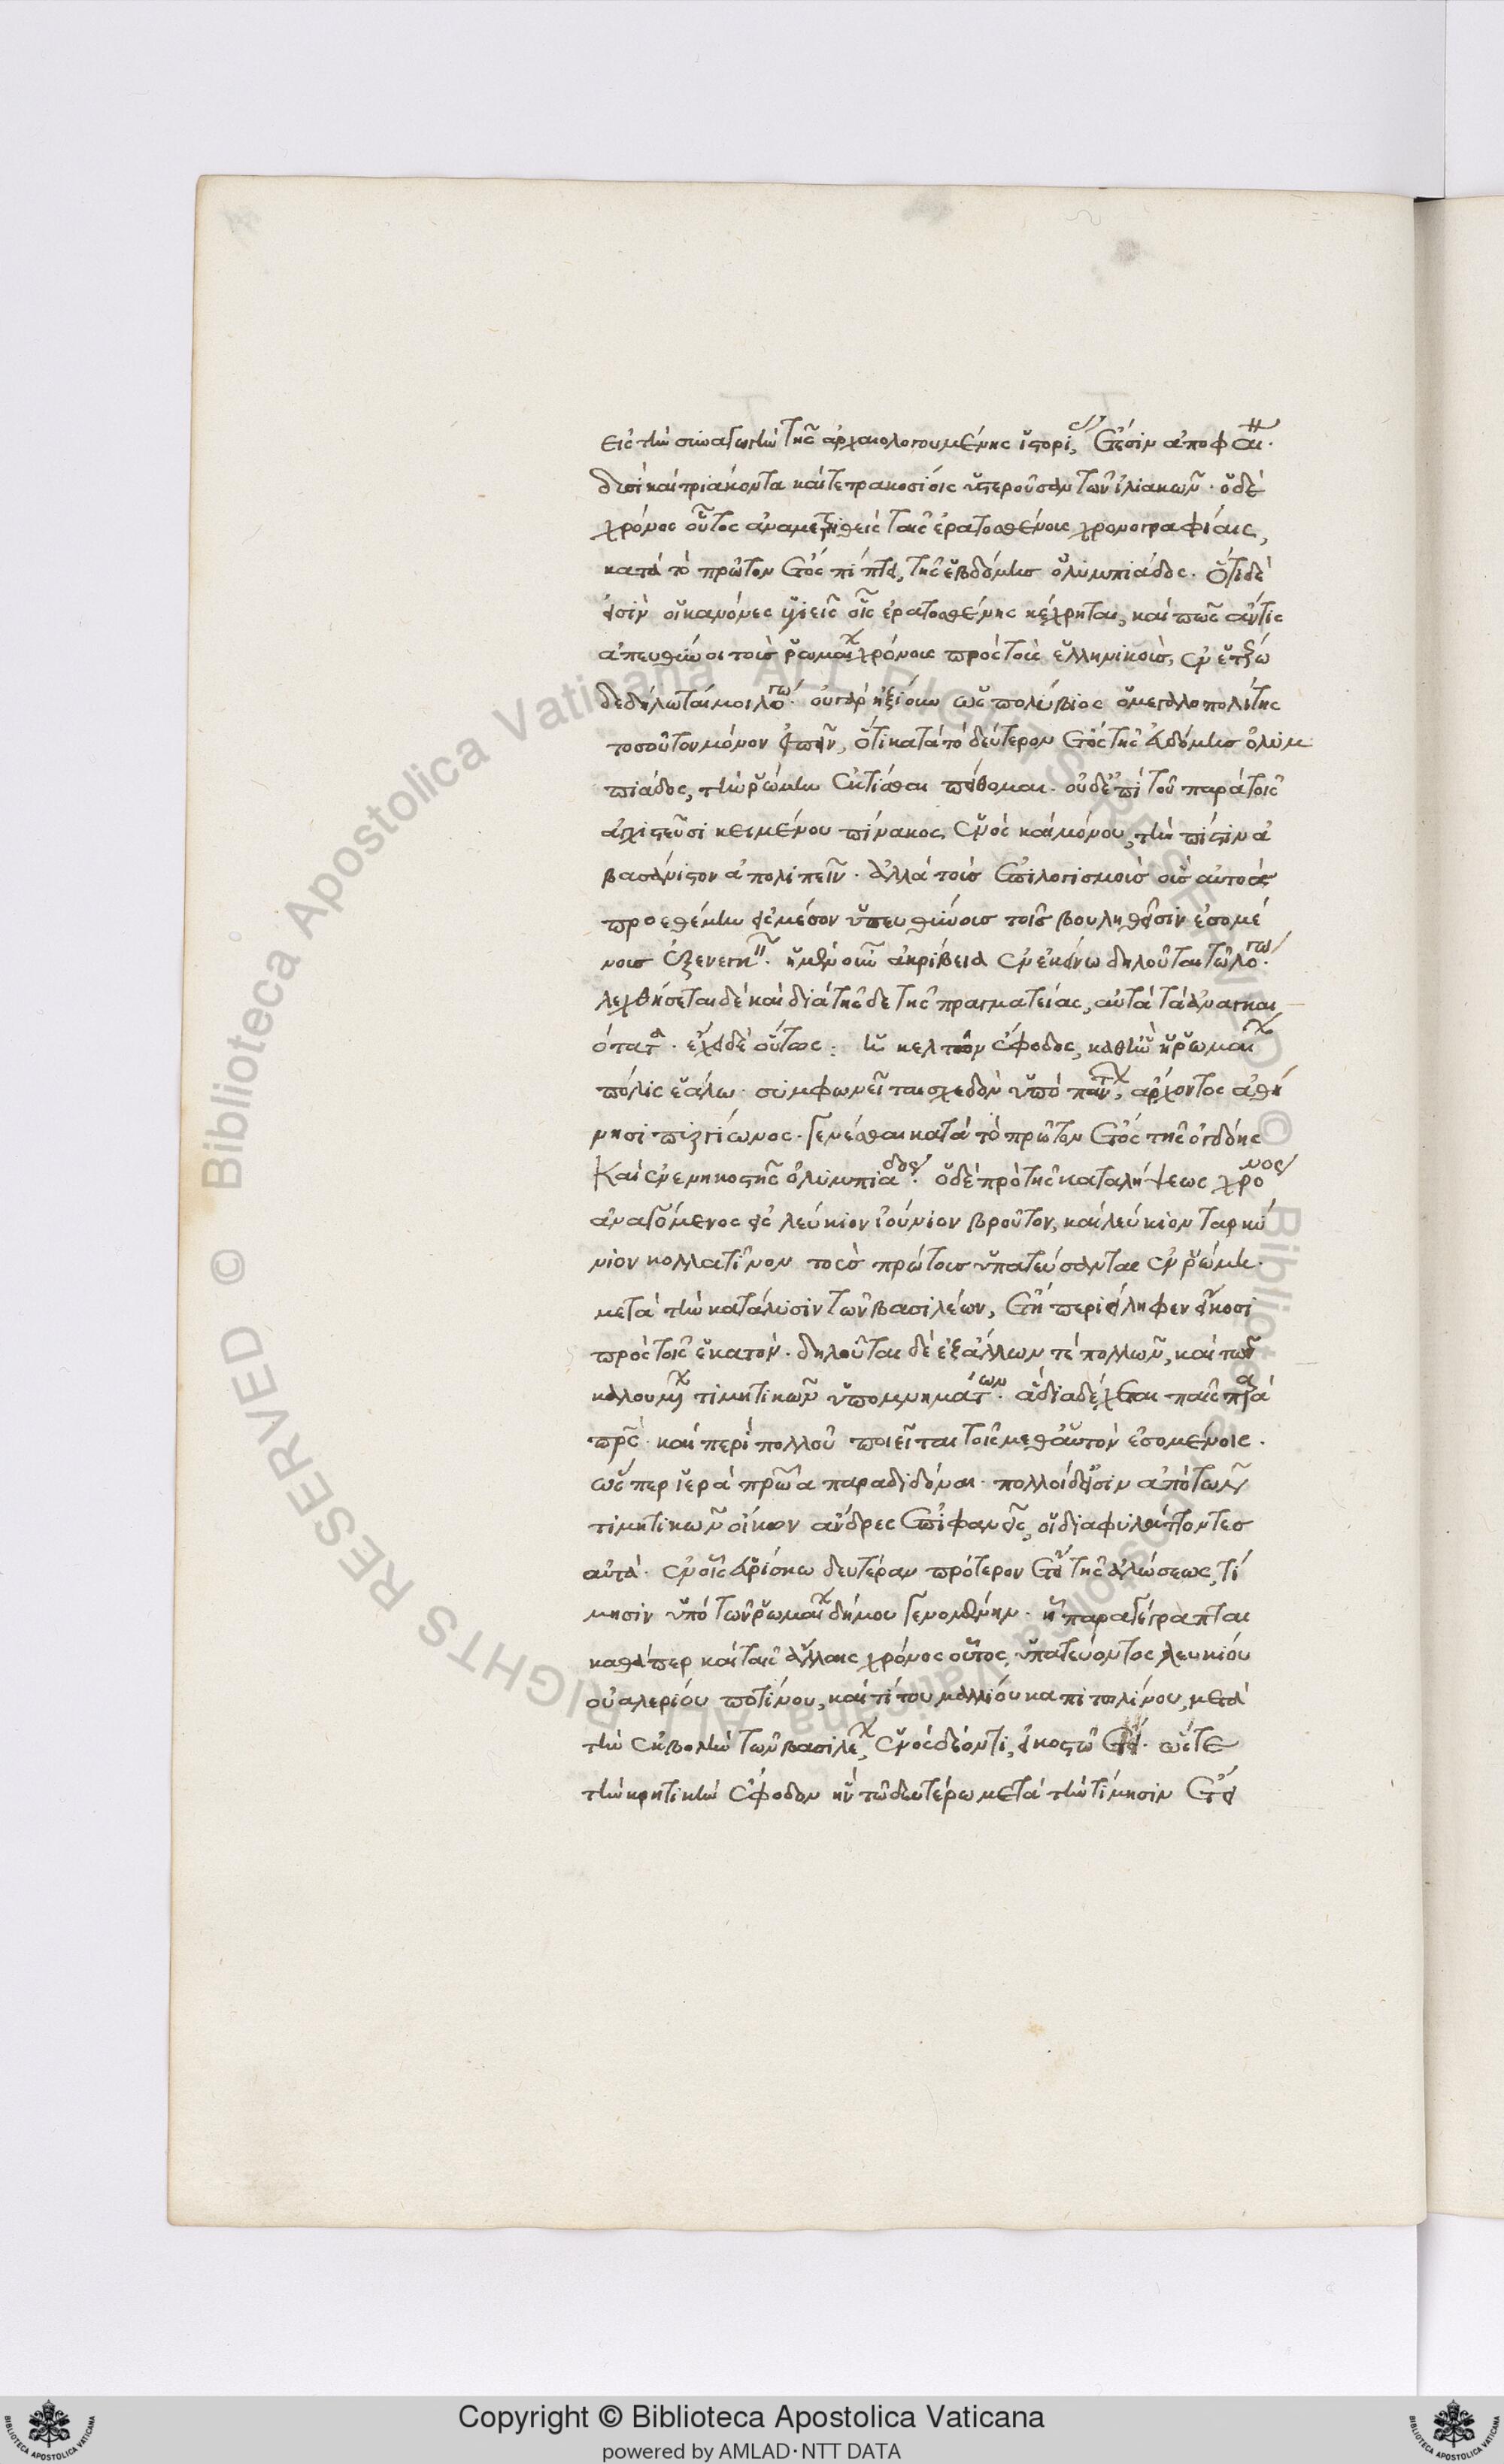 εἰς τὴν συναγωγὴν τῆς ἀρχαιολογουμένης ἱστορίας, ἔτεσιν ἀποφαίνει
δυσὶ καὶ τριάκοντα καὶ τετρακοσίοις ὑστεροῦσαν τῶν ἰλιακῶν· ὁ δὲ
χρόνος οὗτος ἀναμετρηθεὶς ταῖς ἐρατοσθένους χρονογραφίαις,
κατὰ τὸ πρῶτον ἔτος πίπτει, τῆς ἑβδόμης ὀλυμπιάδος. ὅτι δέ
εἰσὶν οἱ κανόνες ὑγιεῖς οἷς ἐρατοσθένης κέχρηται, καὶ πῶς ἄν τις
ἀπευθύνοι τοὺς ῥωμαίων χρόνους πρὸς τοὺς ἑλληνικοὺς, ἐν ἑτέρω
δεδήλωταί μοι λόγω. οὐ γὰρ ἠξίουν ὡς πολύβιος ὁ μεγαλλοπολίτης
τοσοῦτον μόνον εἰπεῖν, ὅτι κατὰ τὸ δεύτερον ἔτος τῆς ἑβδόμης ὀλυμ
πιάδος, τὴν ῥώμην ἐκτίσθαι πείθομαι. οὐδ' ἐπὶ τοῦ παρὰ τοῖς
ἀγχιστεῦσι κειμένου πίνακος ἑνὸς καὶ μόνου, τὴν πίστιν ἀ
βασάνιστον ἀπολιπεῖν. ἀλλὰ τοὺς ἐπιλογισμοὺς οἷς αὐτὸς
προεθέμην εἰς μέσον ὑπευθύνους τοῖς βουληθεῖσιν ἐσομέ
νους ἐξενεγκεῖν. ἡ μὲν οὖν ἀκρίβεια ἐν ἐκείνω δηλοῦται τῶ λόγω.
λεχθήσεται δὲ καὶ διὰ τῆσδε τῆς πραγματείας, αὐτὰ τὰ ἀναγκαι
ότατα. ἔχει δὲ οὕτως: ἡ κελτῶν ἔφοδος, καθ' ἣν ἡ ῥωμαίων
πόλις ἑάλω. συμφωνεῖται σχεδὸν ὑπὸ πάντων, ἄρχοντος ἀθή
νησι πυργίωνος. γενέσθαι κατὰ τὸ πρῶτον ἔτος τῆς ὀγδόης
Καὶ ἐνενηκοστῆς ὀλυμπιάδος. ὁ δὲ πρὸ τῆς καταλήψεως χρόνος
ἀναγόμενος εἰς λεύκιον ἰούνιον βροῦτον, καὶ λεύκιον ταρκύ
νιον κολλατῖνον τοὺς πρώτους ὑπατεύσαντας ἐν ῥώμη.
μετὰ τὴν κατάλυσιν τῶν βασιλέων, ἔτη περιείληφεν εἴκοσι
πρὸς τοῖς ἑκατόν. δηλοῦται δὲ ἐξ ἄλλων τε πολλῶν, καὶ τῶν
καλουμένων τιμητικῶν ὑπομνημάτων. ἃ διαδέχεται παῖς παρὰ
πρς. καὶ περὶ πολλοῦ ποιεῖται τοῖς μεθ' αὑτὸν ἐσομένοις.
ὥσπερ ἱερὰ πρῶα παραδιδόναι. πολλοὶ δ' εἰσὶν ἀπὸ τῶν
τιμητικῶν οἴκων ἄνδρες ἐπιφανεῖς, οἱ διαφυλάττοντες
αὐτά. ἐν οἷς εὑρίσκω δευτέρω πρότερον ἔτει τῆς ἁλώσεως, τί
μησιν ὑπὸ τῶν ῥωμαίων δήμου γενομένην. ἧ παραγέγραπται
καθάπερ καὶ ταῖς ἄλλαις χρόνος οὗτος, ὑπατεύοντος λευκίου
οὐαλερίου ποτίτου, καὶ τίτου μαλλίου καπιτωλίνου, μετὰ
τὴν ἐκβολὴν τῶν βασιλέων, ἑνὸς δέοντι, εἰκοστῶ ἔτει. ὥστε
τὴν κρητικὴν ἔφοδον ἣν τῶ δευτέρω μετὰ τὴν τίμησιν ἔτει